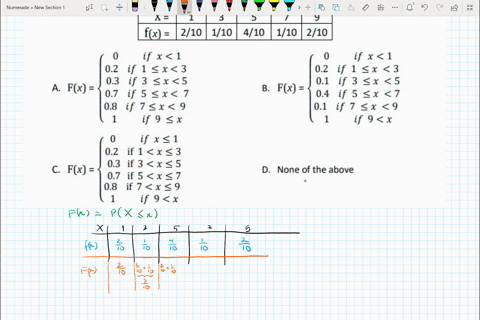 Numerade » New Section 1
X = 1 3 5 7 9
f(x) = 2/10 1/10 4/10 1/10 2/10
A. F(x) = { 0 if x < 1
0.2 if 1 ≤ x < 3
0.3 if 3 ≤ x < 5
0.7 if 5 ≤ x < 7
0.8 if 7 ≤ x < 9
1 if 9 ≤ x
B. F(x) = { 0 if x < 1
0.2 if 1 ≤ x < 3
0.1 if 3 ≤ x < 5
0.4 if 5 ≤ x < 7
0.1 if 7 ≤ x < 9
1 if 9 < x
C. F(x) = { 0 if x ≤ 1
0.2 if 1 < x ≤ 3
0.3 if 3 < x ≤ 5
0.7 if 5 < x ≤ 7
0.8 if 7 < x ≤ 9
1 if 9 < x
D. None of the above
F(x) = P(X ≤ x)
X 1 2 5 7
f(x) 2/10 1/10 4/10 1/10 2/10
F(x) 2/10
3/10